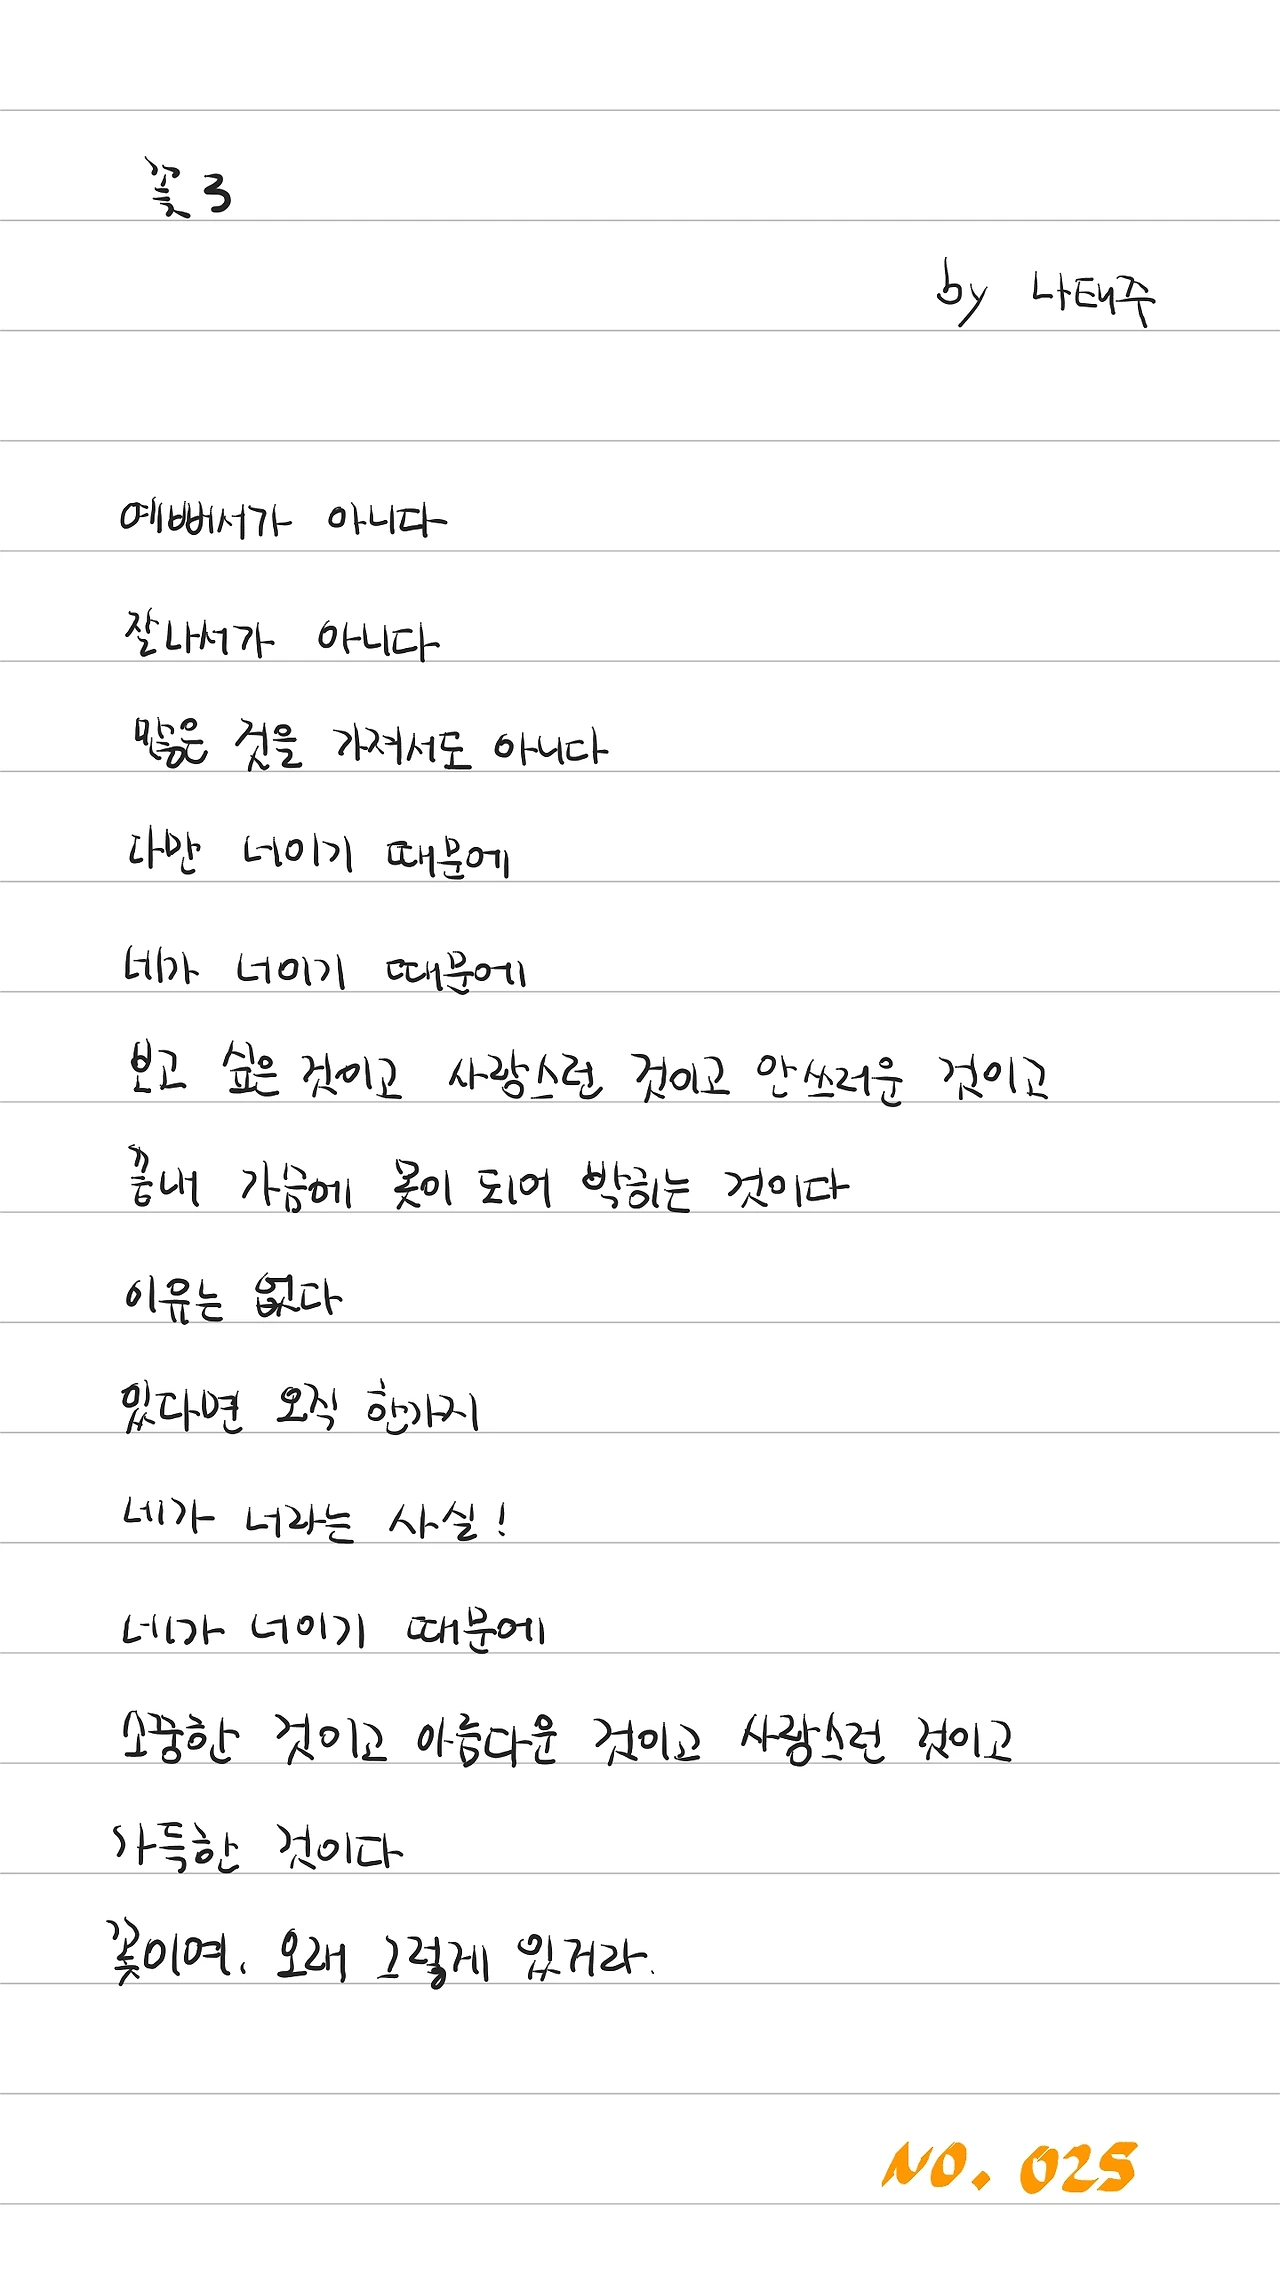 꽃 3
by 나태주
예뻐서가 아니다
잘나서가 아니다
많은 것을 가져서도 아니다
다만 너이기 때문에
네가 너이기 때문에
보고 싶은 것이고 사랑스런 것이고 안쓰러운 것이고
끝내 가슴에 못이 되어 박히는 것이다
이유는 없다
있다면 오직 한가지
네가 너라는 사실!
네가 너이기 때문에
소중한 것이고 아름다운 것이고 사랑스런 것이고
가득한 것이다
꽃이여, 오래 그렇게 있거라.
NO. 025